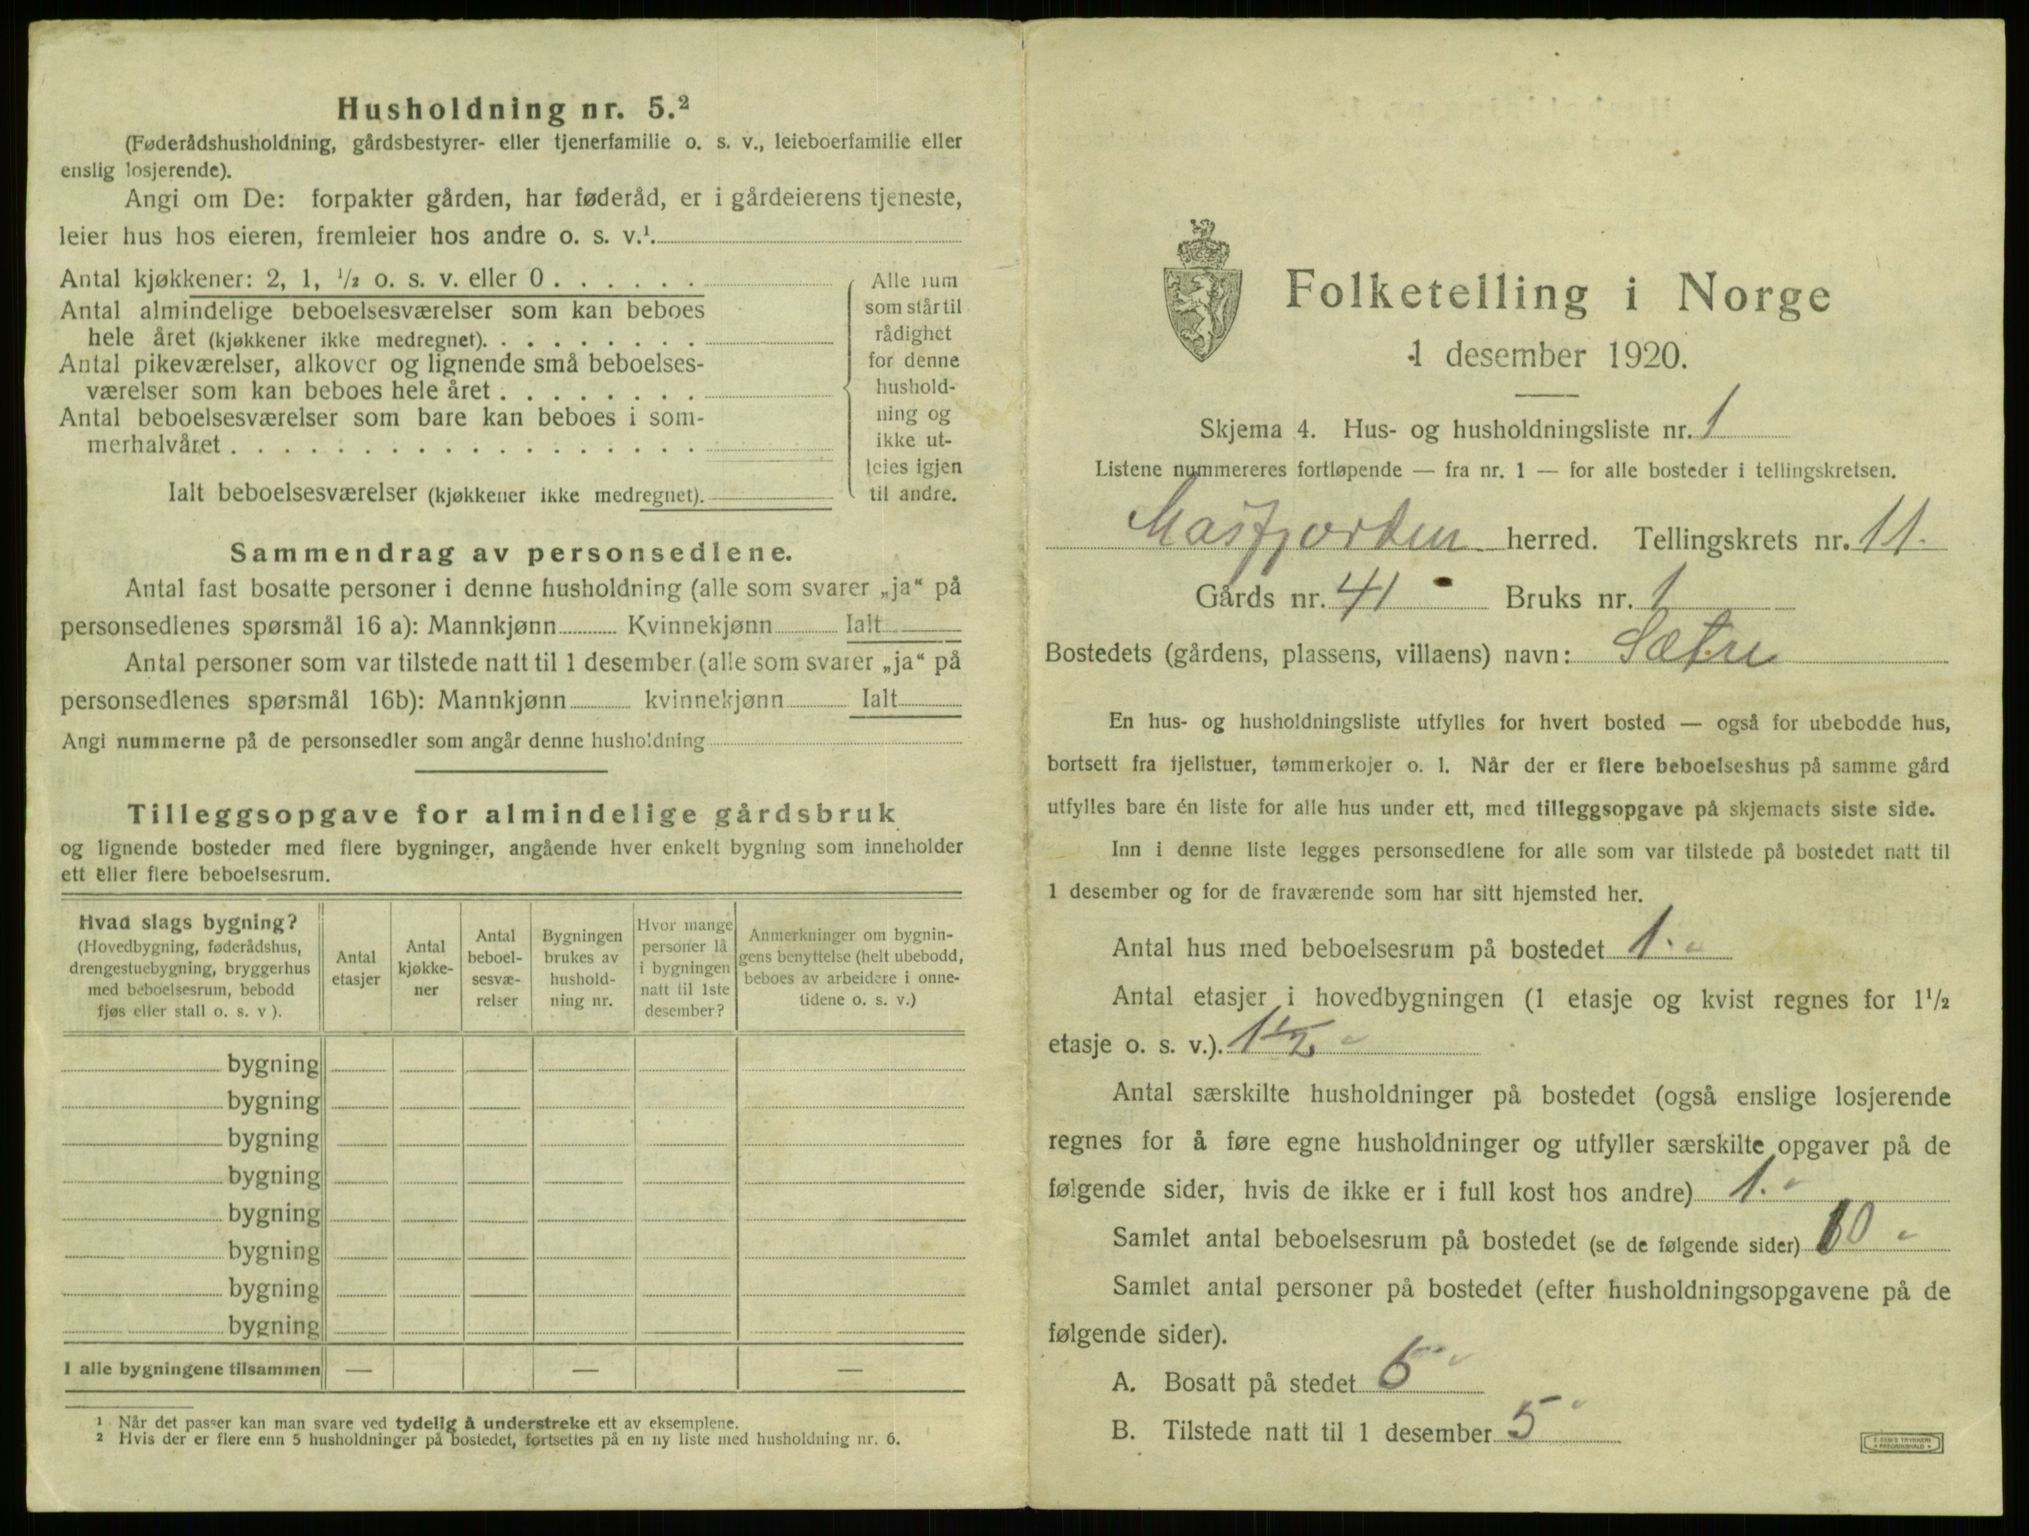 Husholdning nr. 5.²
(Føderådshusholdning, gårdsbestyrer- eller tjenerfamilie o. s. v., leieboerfamilie eller
enslig losjerende).
Angi om De: forpakter gården, har føderåd, er i gårdeierens tjeneste,
leier hus hos eieren, fremleier hos andre o. s. v.¹.
Antal kjøkkener: 2, 1, ¹/₂ o. s. v. eller 0
Antal almindelige beboelsesværelser som kan beboes
hele året (kjøkkener ikke medregnet).
Antal pikeværelser, alkover og lignende små beboelses-
værelser som kan beboes hele året
Antal beboelsesværelser som bare kan beboes i som-
merhalvåret
Ialt beboelsesværelser (kjøkkener ikke medregnet).
Alle rum
som står til
rådighet
for denne
hushold-
ning og
ikke ut-
leies igjen
til andre.
Sammendrag av personsedlene.
Antal fast bosatte personer i denne husholdning (alle som svarer „ja“ på
personsedlenes spørsmål 16 a): Mannkjønn Kvinnekjønn Ialt
Antal personer som var tilstede natt til 1 desember (alle som svarer „ja“ på
personsedlenes spørsmål 16b): Mannkjønn kvinnekjønn Ialt
Angi nummerne på de personsedler som angår denne husholdning
Tilleggsopgave for almindelige gårdsbruk
og lignende bosteder med flere bygninger, angående hver enkelt bygning som inneholder
ett eller flere beboelsesrum.
Hvad slags bygning?
(Hovedbygning, føderådshus,
drengestuebygning, bryggerhus
med beboelsesrum, bebodd
fjøs eller stall o. s. v ).
Antal
etasjer
Antal
kjøkke-
ner
Antal
beboel-
sesvæ-
relser
Bygningen
brukes av
hushold-
ning nr.
Hvor mange
personer lå
i bygningen
natt til 1ste
desember?
Anmerkninger om bygnin-
gens benyttelse (helt ubebodd,
beboes av arbeidere i onne-
tidene o. s. v.)
bygning
bygning
bygning
bygning
bygning
bygning
bygning
bygning
I alle bygningene tilsammen — — —
¹ Når det passer kan man svare ved tydelig å understreke ett av eksemplene.
² Hvis der er flere enn 5 husholdninger på bostedet, fortsettes på en ny liste med husholdning nr. 6.
Folketelling i Norge
1 desember 1920.
Skjema 4. Hus- og husholdningsliste nr. 1
Listene nummereres fortløpende — fra nr. 1 — for alle bosteder i tellingskretsen.
Masfjorden herred. Tellingskrets nr. 11.
Gårds nr. 41 Bruks nr. 1
Bostedets (gårdens, plassens, villaens) navn: Sætre
En hus- og husholdningsliste utfylles for hvert bosted — også for ubebodde hus,
bortsett fra fjellstuer, tømmerkojer o. l. Når der er flere beboelseshus på samme gård
utfylles bare én liste for alle hus under ett, med tilleggsopgave på skjemaets siste side.
Inn i denne liste legges personsedlene for alle som var tilstede på bostedet natt til
1 desember og for de fraværende som har sitt hjemsted her.
Antal hus med beboelsesrum på bostedet 1.
Antal etasjer i hovedbygningen (1 etasje og kvist regnes for 1¹/₂
etasje o. s. v.). 1½
Antal særskilte husholdninger på bostedet (også enslige losjerende
regnes for å føre egne husholdninger og utfyller særskilte opgaver på de
følgende sider, hvis de ikke er i full kost hos andre) 1.
Samlet antal beboelsesrum på bostedet (se de følgende sider) 10
Samlet antal personer på bostedet (efter husholdningsopgavene på de
følgende sider).
A. Bosatt på stedet 5
B. Tilstede natt til 1 desember 5